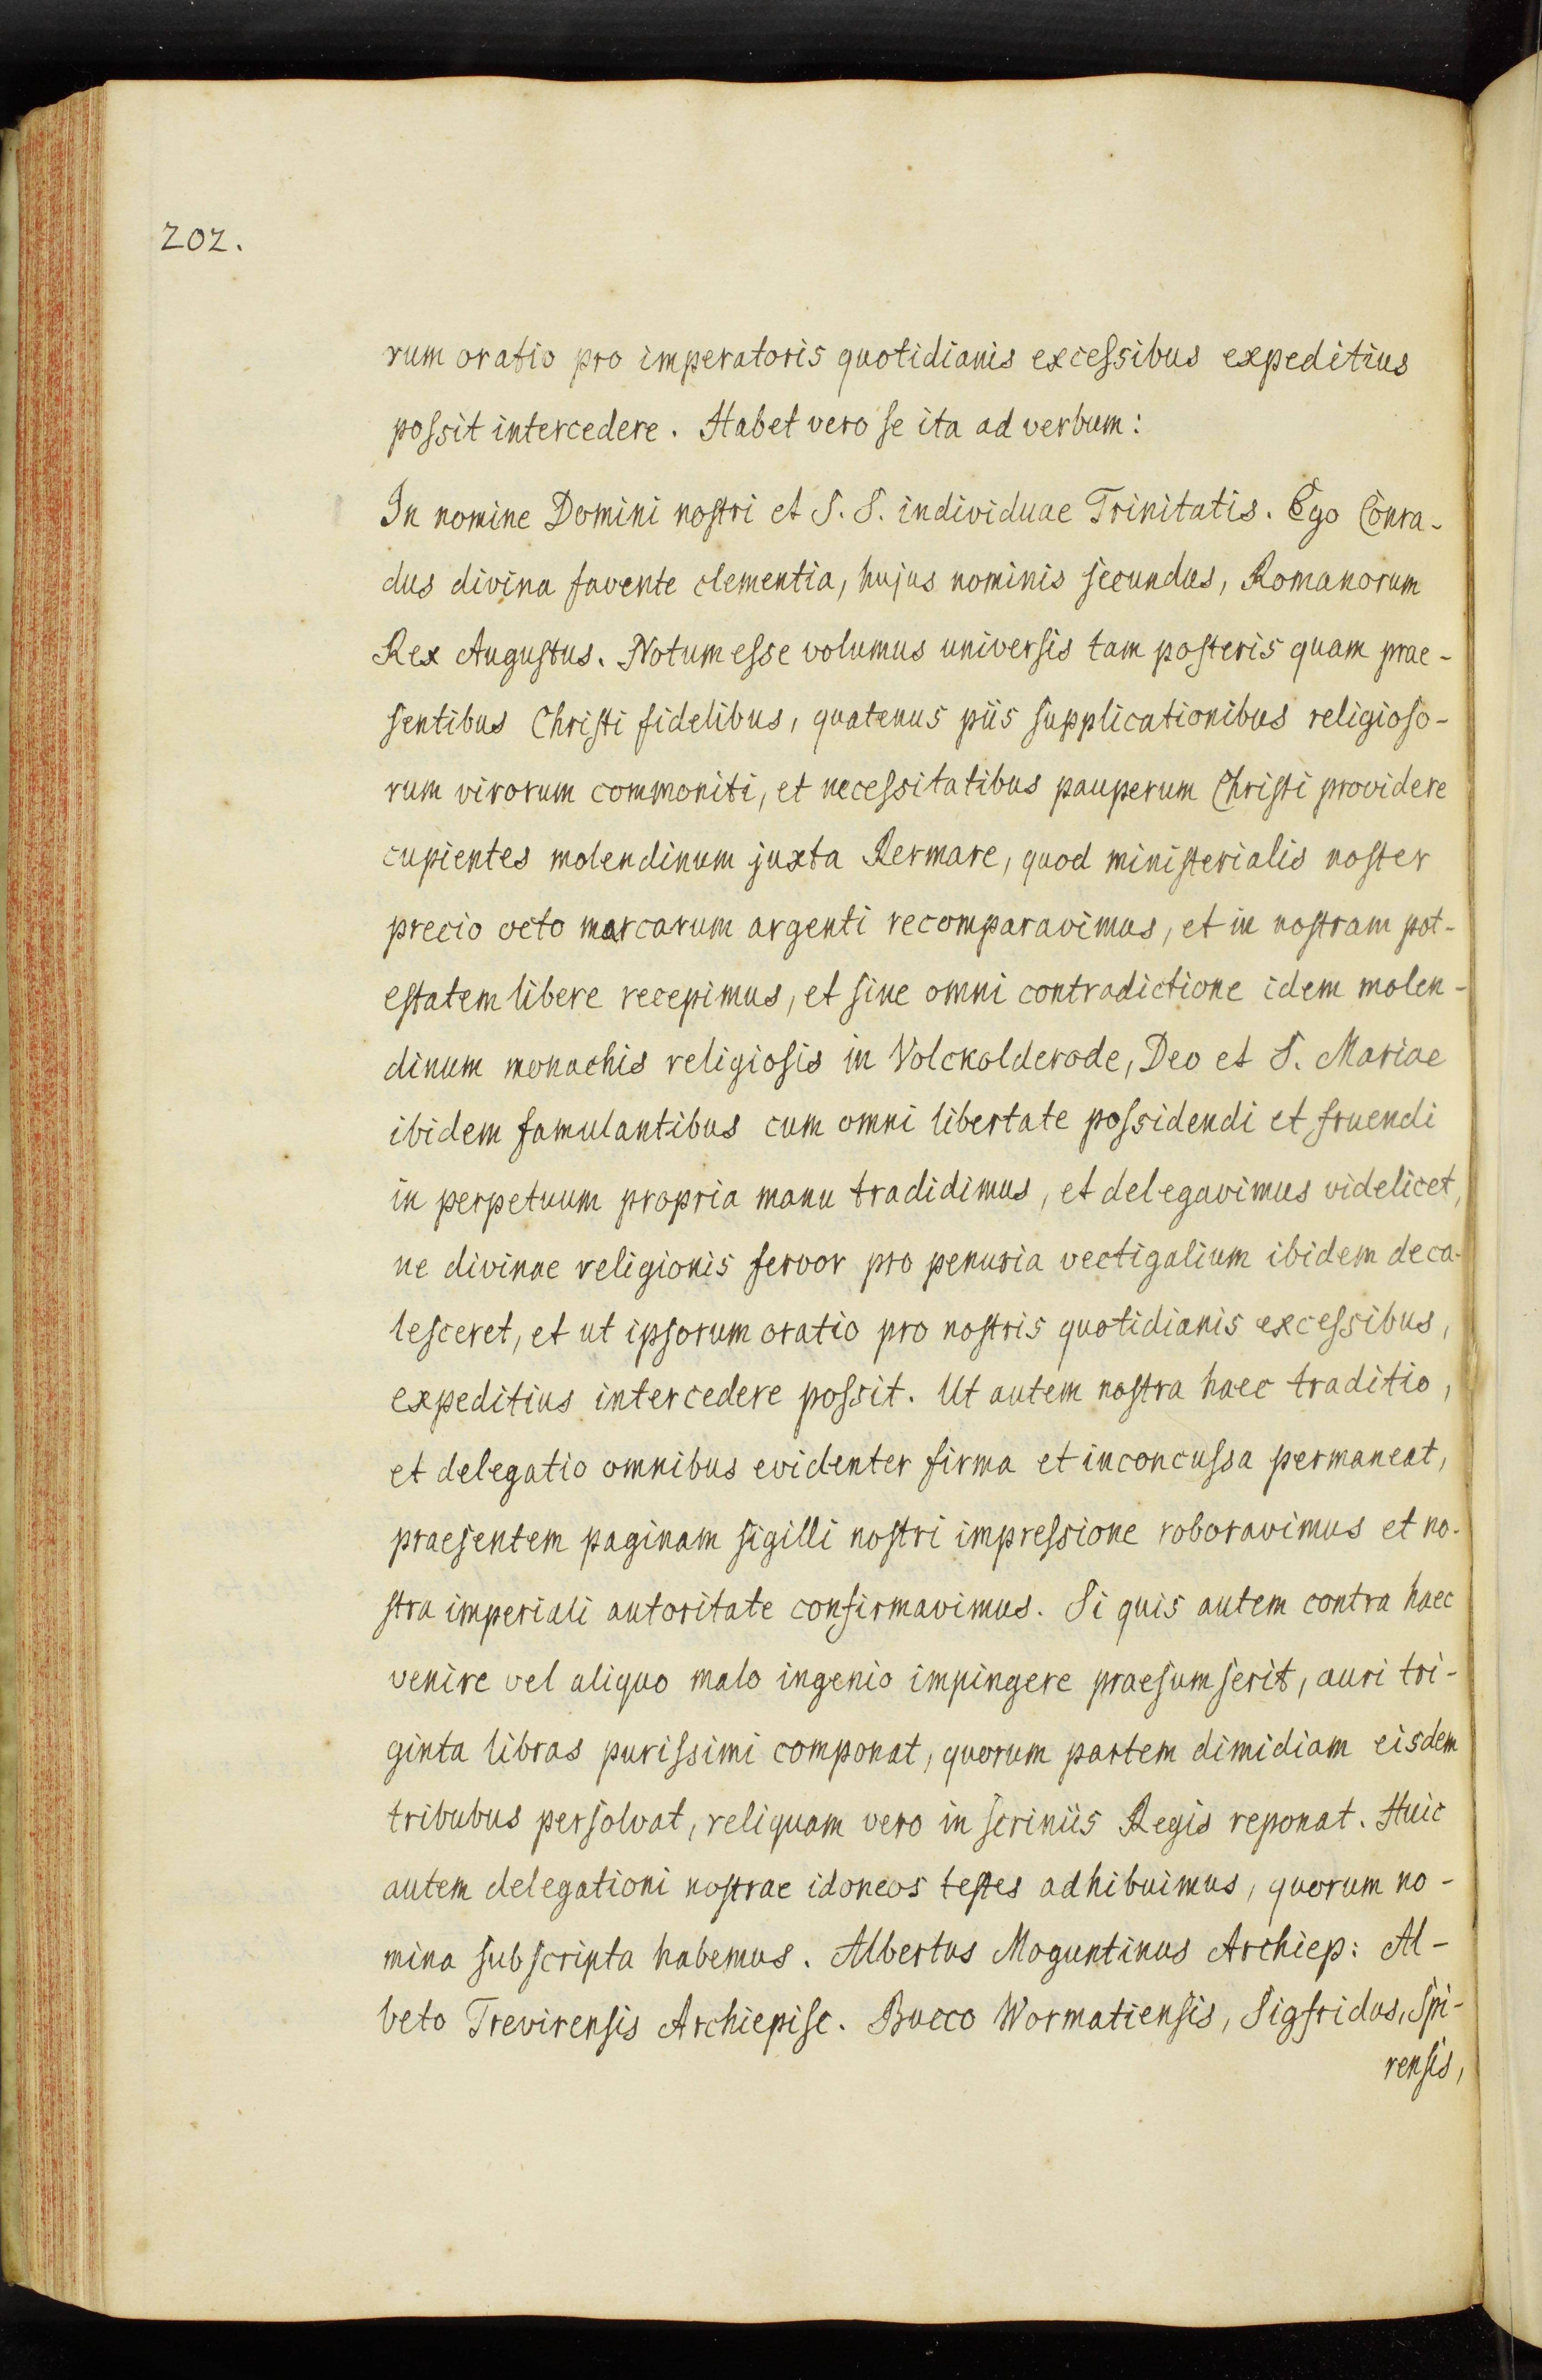 202.
rum oratio pro imperatoris quotidianis excessibus expeditius
possit intercedere. Habet vero se ita ad verbum:
In nomine Domini nostri et S. S. individuae Trinitatis. Ego Conra-
dus divina favente clementia, hujus nominis secundus, Romanorum
Rex Augustus. Notum esse volumus universis tam posteris quam prae-
sentibus Christi fidelibus, quatenus piis supplicationibus religioso-
rum virorum commoniti, et necessitatibus pauperum Christi providere
cupientes molendinum juxta Rermare, quod ministerialis noster
precio octo marcarum argenti recomparavimus, et in nostram pot-
estatem libere recepimus, et sine omni contradictione idem molen-
dinum monachis religiosis in Volckolderode, Deo et S. Mariae
ibidem famulantibus cum omni libertate possidendi et fruendi
in perpetuum propria manu tradidimus, et delegavimus videlicet,
ne divinae religionis fervor pro penuria vectigalium ibidem deca-
lesceret, et ut ipsorum oratio pro nostris quotidianis excessibus,
expeditius intercedere possit. Ut autem nostra haec traditio,
et delegatio omnibus evidenter firma et inconcussa permaneat,
praesentem paginam sigilli nostri impressione roboravimus et no-
stra imperiali autoritate confirmavimus. Si quis autem contra haec
venire vel aliquo malo ingenio impingere praesumserit, auri tri-
ginta libras purissimi componat, quorum partem dimidiam eisdem
tribubus persolvat, reliquam vero in scriniis Regis reponat. Huic
autem delegationi nostrae idoneos testes adhibuimus, quorum no-
mina subscripta habemus. Albertus Moguntinus Archiep: Al-
beto Trevirensis Archiepisc. Bucco Wormatiensis, Sigfridus, Spi-
rensis,